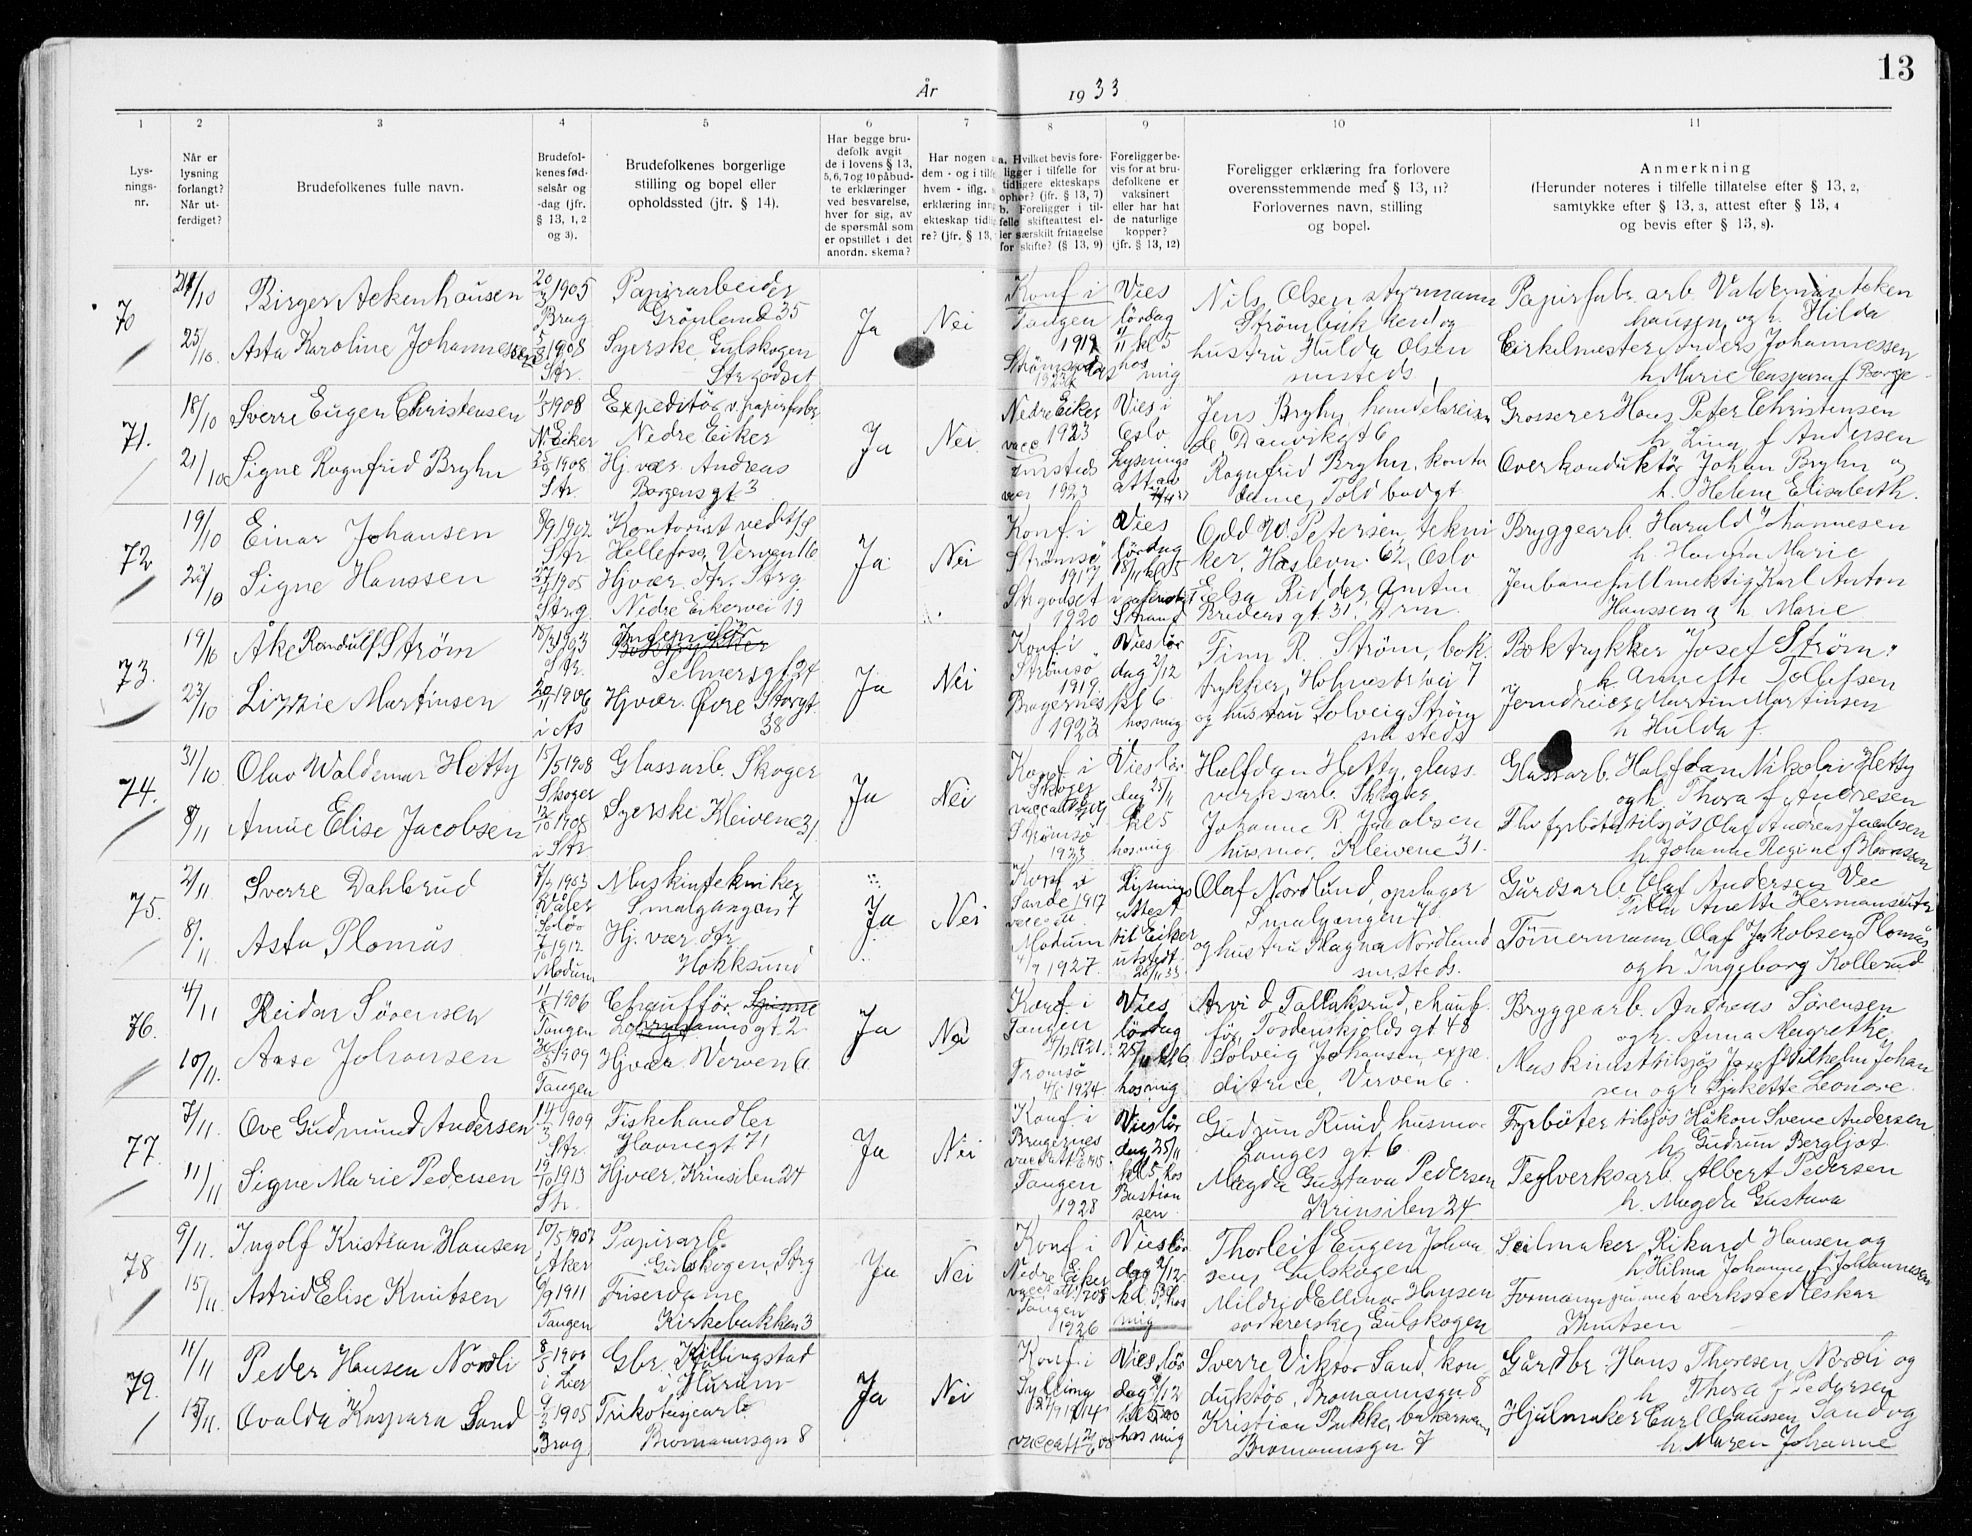 13
År 1933
1 2 3 4 5 6 7 8 9 10 11
Lys-
nings-
nr.
Når er
lysning
forlangt?
Når ut-
ferdiget?
Brudefolkenes fulle navn.
Brudefol-
kenes fød-
selsår og
-dag (jfr.
§ 13, 1, 2
og 3).
Brudefolkenes borgerlige
stilling og bopel eller
opholdssted (jfr. § 14).
Har begge bru-
defolk avgit
de i lovens § 13,
5, 6, 7 og 10 påbud-
te erklæringer
ved besvarelse,
hver for sig, av
de spørsmål som
er opstillet i det
anordn. skema?
Har nogen
dem - og i tilf
hvem - iflg.
erklæring inn
ekteskap tidlig
re? (jfr. § 13,
a. Hvilket bevis fore-
ligger i tilfelle for
tidligere ekteskaps
ophør? (jfr. § 13, 7)
b. Foreligger i til-
felle skifteattest el-
ler særskilt fritagelse
for skifte? (§ 13, 9)
Foreligger be-
vis for at bru-
defolkene er
vaksinert
eller har hat
de naturlige
kopper?
(jfr. § 13, 12)
Foreligger erklæring fra forlovere
overensstemmende med § 13, 11?
Forlovernes navn, stilling
og bopel.
Anmerkning
(Herunder noteres i tilfelle tillatelse efter § 13, 2,
samtykke efter § 13, 3, attest efter § 13, 4
og bevis efter § 13, 8).
70
21/10
25/10
Birger Ackenhausen
Asta Karoline Johannessen
20/3 1905
Brag.
5/8 1908
Str.
Papirarbeider
Grønland 35
Syerske, Gulskogen
Strgodset
Ja
Nei
Konf i
Tangen
1919
Strømsgodset
Vies
lørdag
11/11 kl 5
hos
mig
Nils Olsen styrmann
hustru Hulda Olsen
smsteds
Papirfabr. arb. Valdemar Acken
hausen og h. Hilda
Cirkelmester Anders Johannessen
h Marie Caspara f Borge
71.
18/10
21/10
Sverre Eugen Christensen
Signe Ragnfrid Bryhn
1908
N. Eiker
1908
Str.
Expeditør v. papirfabr.
Nedre Eiker
Hj. vær. Andreas
Borgensgt 3
Ja
Nei
Nedre Eiker
vacc 1923
smsteds
1923
Vies i
Oslo
Lysnings
Jens Bryhn, handelsreisen
de Danvikgt 6
Ragnfrid Bryhn, kontor
dame, Toldbodgt
Grosserer Hans Peter Christensen
h Lina f Andersen
Overkonduktør Johan Bryhn og
h. Helene Elisabeth.
72
19/10
Einar Johansen
Signe Hanssen
8/9 1902
Str
1905
Strg.
Kontorist ved A/S
Hellefoss, Verven 16
Hjvær. dtr. Strg
Nedre Eikervei 19
Ja
Nei
Konf. i
Strømsø
1917
Strgodset
1920
Vies
lørdag
18/11 kl 5
Odd W. Petersen, tekni
ker, Haslevn. 62, Oslo
Elsa Ridder, Amtm
Bredens gt. 31. Drm.
Bryggearb. Harald Johannesen
h. Hanna Marie
Jenbanefullmektig Karl Anton
Hanssen og h Marie
73.
19/10
23/10
Åke Randulf Strøm
Lizzie Martinsen
18/3 1903
Str.
20/11 1906
i Ås
Selmersgt 24
Hjvær. Øvre Storgt
38
Ja
Nei
Konf i
Strømsø
1919
Bragernes
1922
Vies lør
dag 2/12
kl 6
hos mig
Finn R. Strøm, bok.
trykker, Holmestr. vei 7
og hustru Solveig Strøm
smsteds
Boktrykker Josef Strøm.
h Annette Tollefsen
Jerndreier Martin Martinsen
h Hulda f
74.
31/10
8/11
Olav Waldemar Hetty
Annie Elise Jacobsen
15/5 1908
Skoger
12/10 1908
i Str
Glassarb. Skoger
Syerske Kleivene 31
Ja
Nei
Konf i
Skoger
Strømsø
1923
Vies lør
dag 25/11
kl 5
hos mig.
Halfdan Hetty, glass
verksarb Skoger
Johanne R. Jacobsen
husmor, Kleivene 31.
Glassarb. Halfdan Nikolai Hetty
og h. Thora f Andresen
Fhv fyrbøter tilsjøs Olaf Andreas Jacobsen
h. Johanne Regine f Hansen
75.
2/11
8/11
Sverre Dahlerud
Asta Plomås
7/7 1903
Våler
Solør
1912
Modum
Maskintekniker
Smalgangen 7
Hj. vær. dtr
Hokksund
Ja
Nei
Konf i
Sande 1917
Modum
1927.
Lysnings
attest
til Eiker
utstedt
Olaf Nordlund, opslager
Smalgangen 7
og hustru Magna Nordlund
smsteds.
Gårdsarb. Olaf Andersen Vee
Tømmermann Olaf Jakobsen Plomås
og h Ingeborg Kollerud
76.
4/11
10/11.
Reidar Sørensen
Aase Johansen
1906
Tangen
1909
Tangen
Chauffør
gt. 2
Hjvær Verven 6
Ja
Nei
Konf. i
Tangen
1921.
Tromsø
1924
Vies
lørdag
25/11 kl 6
hos mig
Arvid Tallaksrud, chauf
før, Tordenskjolds gt 48
Solveig Johansen, expe
ditrice, Verven 6.
Bryggearb. Andreas Sørensen
og h. Anna Magrethe
sen og h Sjakette Leonore.
77.
7/11.
11/11
Ove Gudmund Andersen
Signe Marie Pedersen
14/3 1909
Str.
19/10 1913
Str.
Fiskehandler
Havnegt 71
Hjvær, Krinsilen 24
Ja
Nei
Konf. i
Bragernes
Tangen
1928
Vies lør
dag 25/11
kl 5 hos
Bastian
sen.
Gudrun Rund, husmor
Langes gt 6
Magda Gustava Pedersen
Krinsilen 24
Fyrbøter tilsjøs Håkon Svene Andersen
h Gudrun Bergljot
Teglverksarb. Albert Pedersen
h. Magda Gustava
78
9/11.
15/11.
Ingolf Kristian Hansen
Astrid Elise Knutsen
10/5 1907
i Aker
6/9 1911
Tangen
Papirarb.
Gulskogen, Strg
Friserdame
Kirkebakken 3
Ja
Nei
Konf i
Nedre Eiker
Tangen
1926
Vies lør
dag 2/12
mig
Thorleif Eugen Johan
sen, Gulskogen
Mildrid Ellinor Hansen
sortererske, Gulskogen
Seilmaker Rikard Hansen og
h Hilma Johanne f Johannesen
Formann på mek verksted Oskar
Knutsen
79.
11/11
15/11.
Peder Hansen Nordli
Ovalda Kaspara Sand
8/5 1900
i Lier
1905
Brag.
Gbr. Killingstad
i Hurum
Trikotagearb.
Bromannsgn 8
Ja
Nei
Konf. i
Sylling
1914
Vies lør
dag 2/12
hos mig
Sverre Viktor Sand, kon
duktør, Bromannsgn 8
Kristian Bakke, bakersv.,
Bromannsgn 7
Gårdbr. Hans Thoresen Nordli og
h Thora f Pedersen
Hjulmaker Carl Olaussen Sand og
h. Maren Johanne